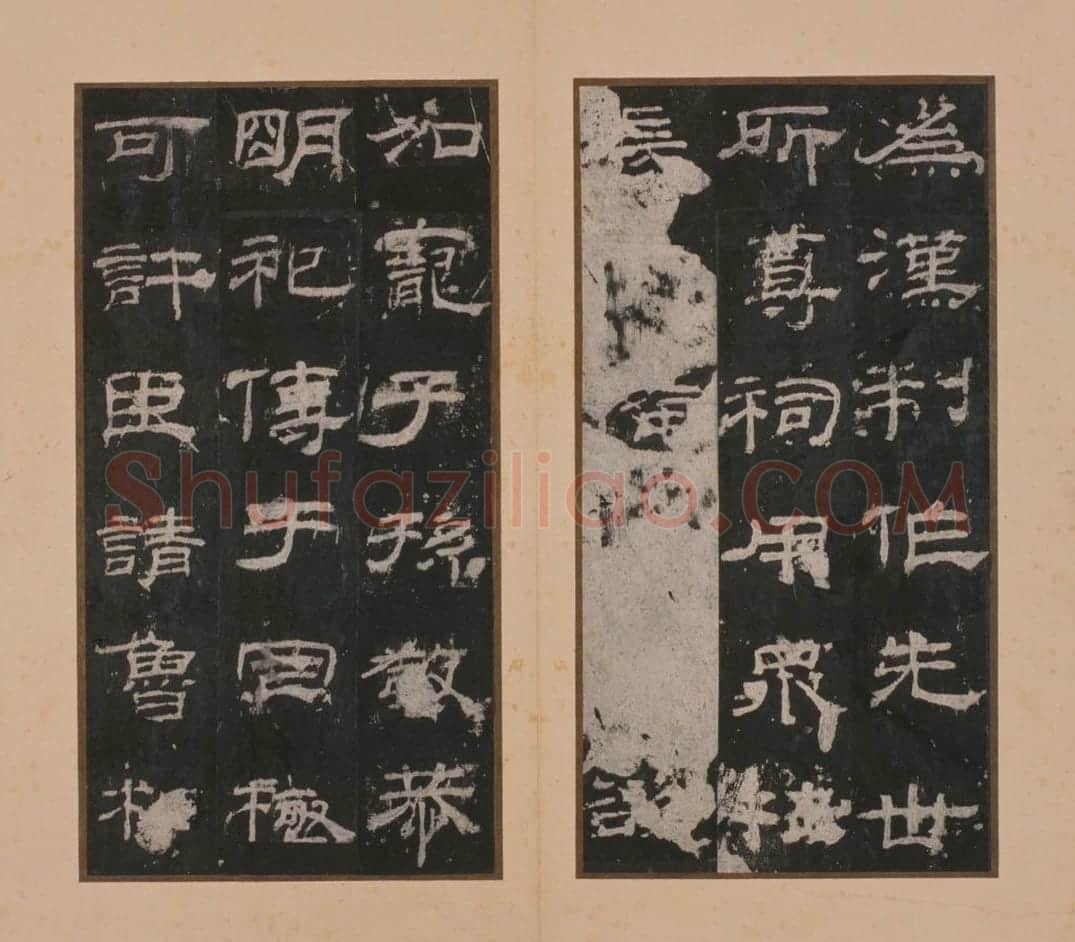 為漢制作先世
所尊祠用眾牲
長備
加寵子孫敬恭
明祀傳于罔極
可許臣請魯相
Shufaziliao.COM